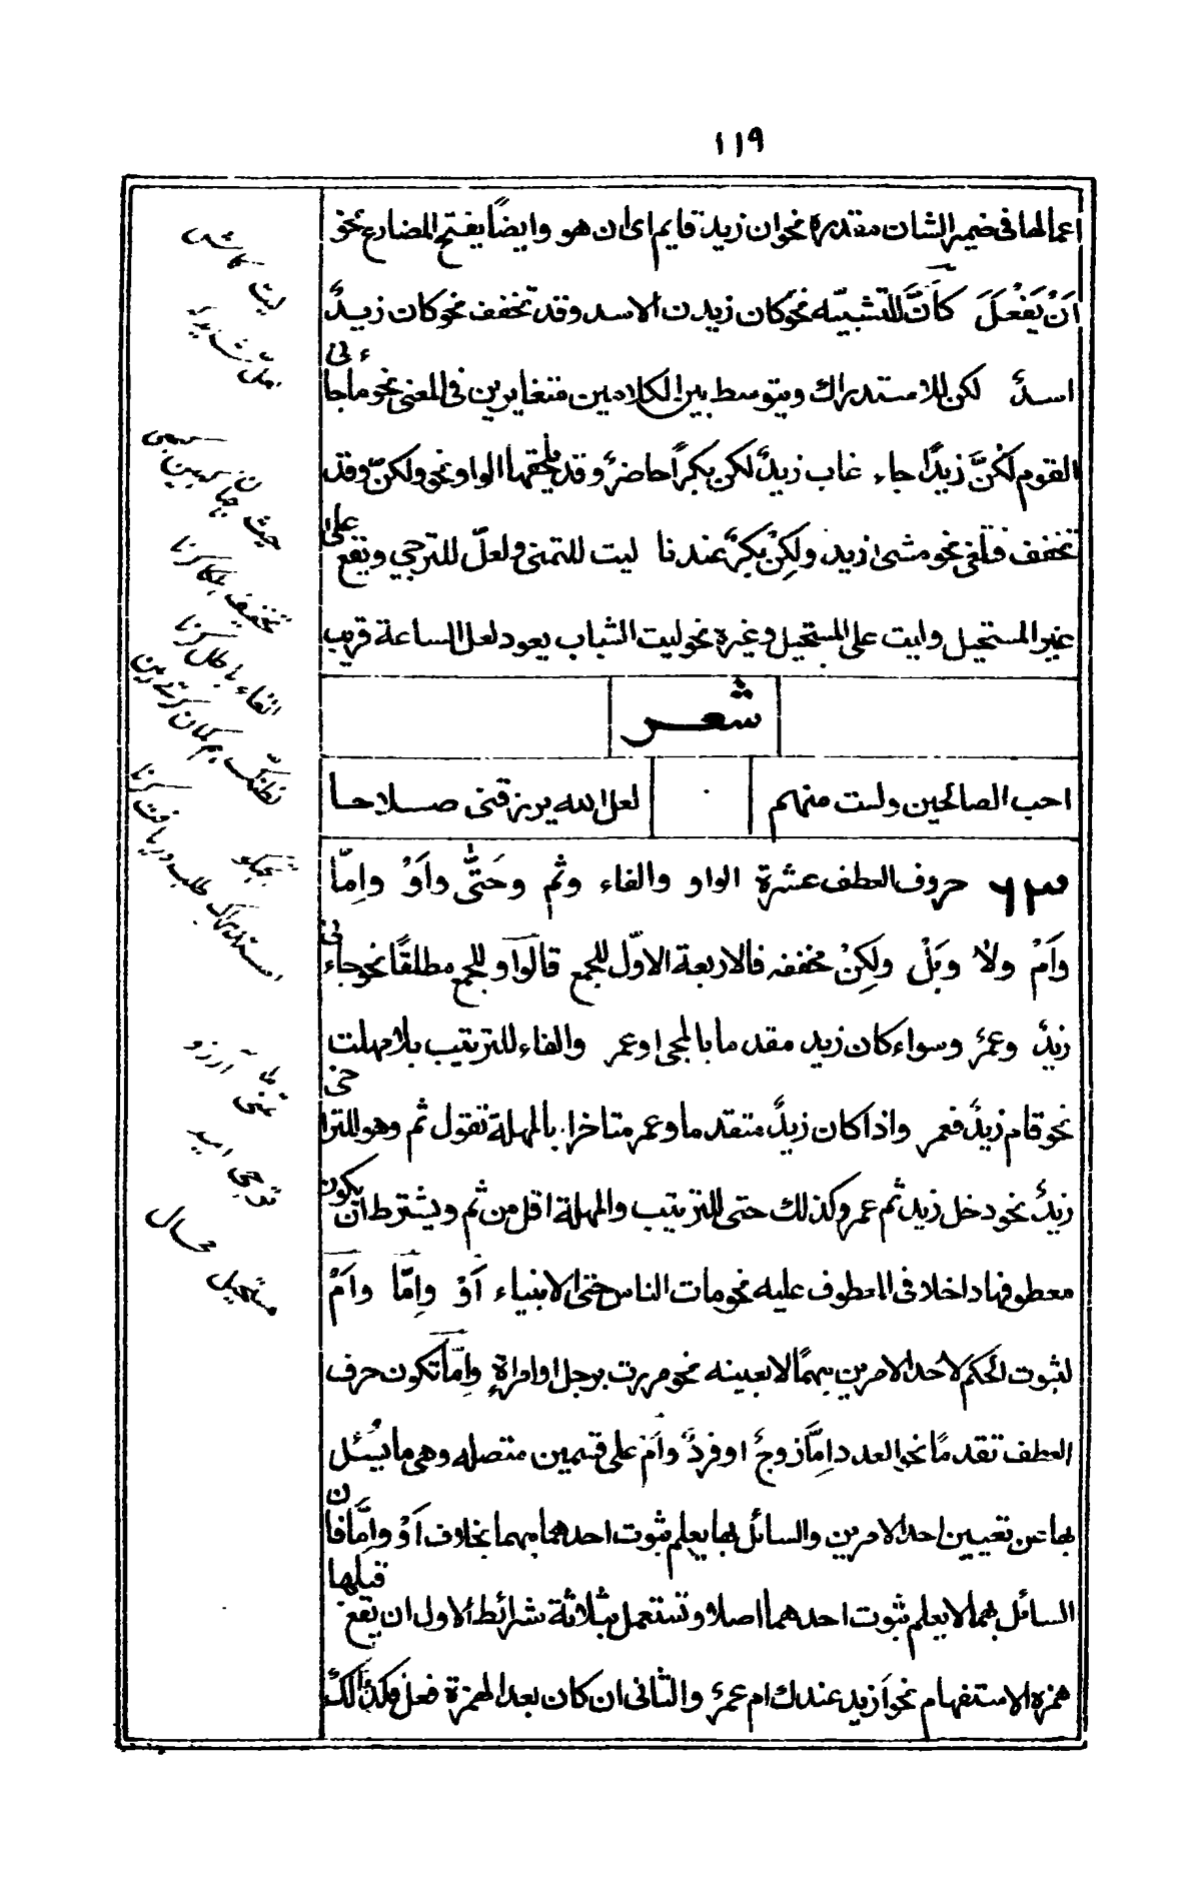 ١١٩
اعمالها فى ضمير الشان مقدرة نحو ان زيد قايم اى ان هو وايضًا يفتح المضارع نحو
اَنْ يَفْعَلَ كَاَنَّ للتشبيّه نحو كان زيدن الاسد وقد تخفف نحو كان زيدٌ
اسدٌ لكن للاستدراك ويتوسط بين الكلامين متغايرين فى المعنى نحو ما جاءنى
القوم لٰكنَّ زيدًا جاء غاب زيدٌ لكن بكرًا حاضرٌ وقد يلحقها الواو نحو ولكنّ وقد
تخفف فتلغى نحو مشى زيد ولكِنْ بكرٌ عندنا ليت للتمنى ولعلّ للترجي ويقع على
غير المستحيل وليت على المستحيل وغيره نحو ليت الشباب يعود لعل الساعة قريب
شعر
احب الصالحين ولست منهم لعل الله يرزقنى صلاحا
٦٣ حروف العطف عشرة الواو والفاء وثم وحَتّٰى واَوْ واِمّا
واَمْ ولاٰ وبَلْ ولٰكِنْ مخففه فالاربعة الاوّل للجمع فالواو للجمع مطلقًا نحو جاءنى
زيدٌ وعمرٌ وسواء كان زيد مقدما بالمجى او عمر والفاء للترتيب بلا مهلت
نحو قام زيدٌ فعمر واذا كان زيدٌ متقدما وعمر متاخرا بالمهلة تقول ثم وهو للتراخى
زيدٌ نحو دخل زيد ثم عمر وكذلك حتى للترتيب والمهلة اقل من ثم ويشترط ان يكون
معطوفها داخلا فى المعطوف عليه نحو مات الناس حتى الانبياء اَوْ واِمّا واَمْ
لثبوت الحكم لاحد الامرين مبهمًا لا بعينه نحو مررت برجل او امراةٍ واِمّا تكون حرف
العطف تقدمًا نحو العدد اِمّا زوجٌ او فردٌ واَمْ على قسمين متصله وهى ما يسُئل
بها عن تعيين احد الامرين والسائل بها يعلم ثبوت احدهما مبهما بخلاف اَوْ واِمّا فان
السائل بهما لا يعلم ثبوت احدهما اصلا وتستعمل بثلاثة شرائط الاول ان يقع قبلها
همزه الاستفهام نحو اَزيد عندك ام عمرٌ والثانى ان كان بعد الهمزة فعل فكذالك
ليت كاش
لعلّ شايد
تخفيف هلكا كرنا
الغاء باطل كرنا
استدراك طلب دريافت كرنا
تمنى آرزو
ترجى اميد
مستحيل محال